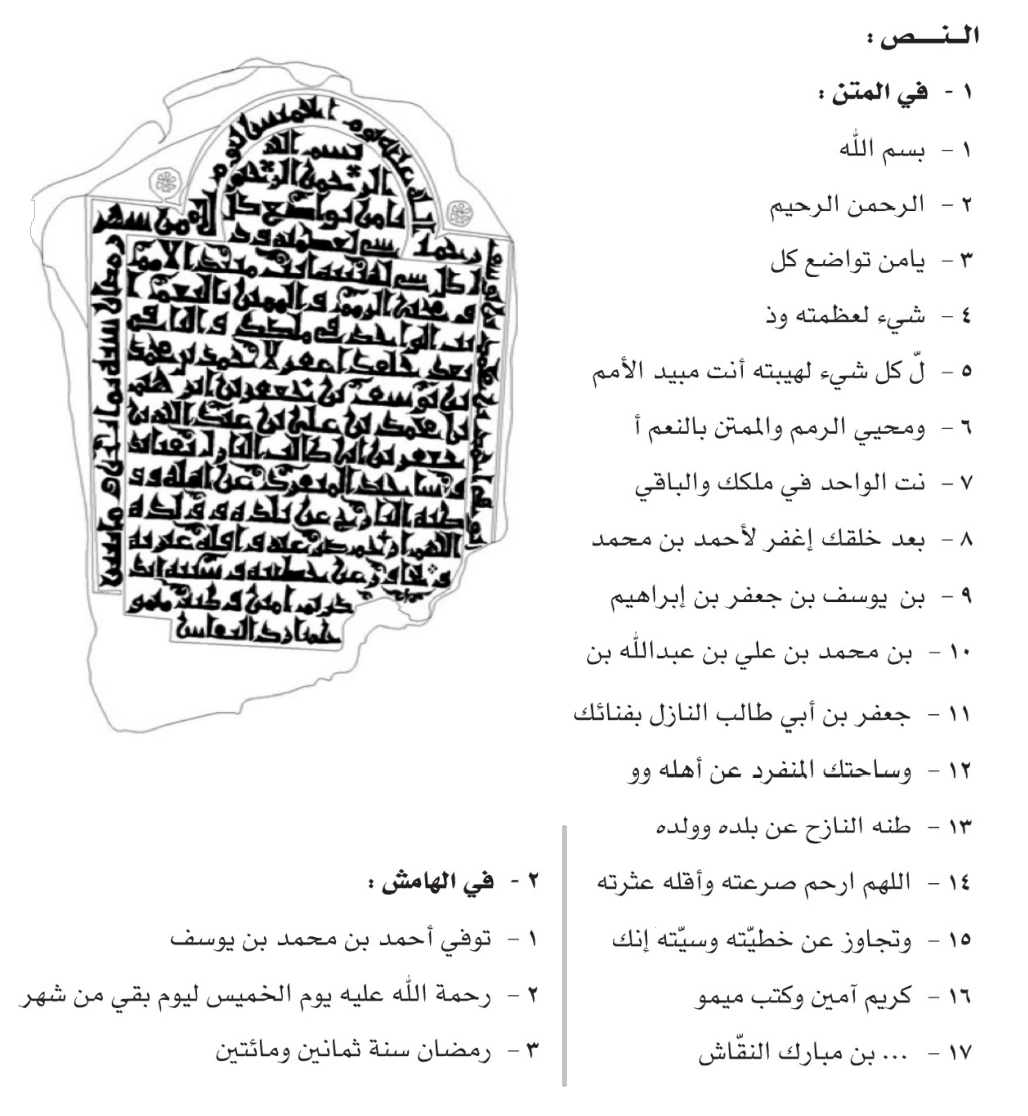 النص :
١ - في المتن :
١ - بسم الله
٢ - الرحمن الرحيم
٣ - يامن تواضع كل
٤ - شيء لعظمته وذ
٥ - لّ كل شيء لهيبته أنت مبيد الأمم
٦ - ومحيي الرمم والممتن بالنعم أ
٧ - نت الواحد في ملكك والباقي
٨ - بعد خلقك إغفر لأحمد بن محمد
٩ - بن يوسف بن جعفر بن إبراهيم
١٠ - بن محمد بن علي بن عبدالله بن
١١ - جعفر بن أبي طالب النازل بفنائك
١٢ - وساحتك المنفرد عن أهله وو
١٣ - طنه النازح عن بلده وولده
١٤ - اللهم ارحم صرعته وأقله عثرته
١٥ - وتجاوز عن خطيّته وسيّته إنك
١٦ - كريم آمين وكتب ميمو
١٧ - ... بن مبارك النقّاش
٢ - في الهامش :
١ - توفي أحمد بن محمد بن يوسف
٢ - رحمة الله عليه يوم الخميس ليوم بقي من شهر
٣ - رمضان سنة ثمانين ومائتين